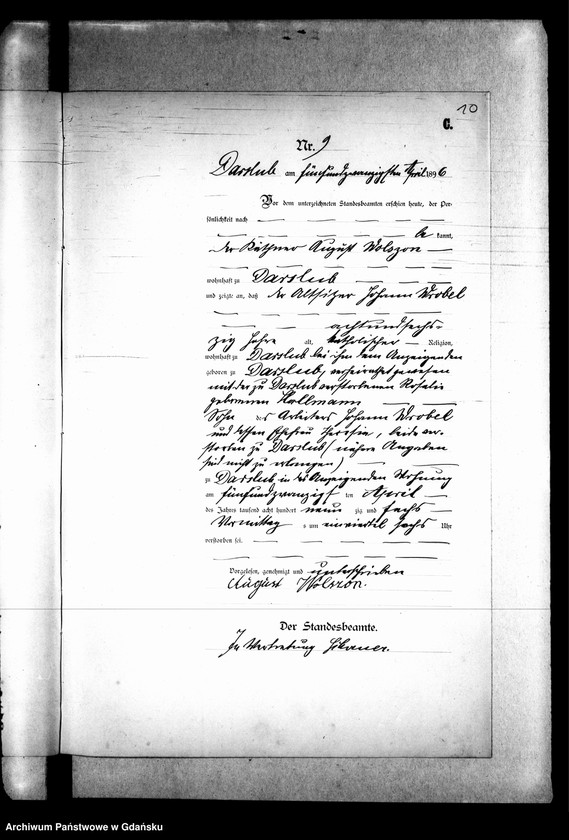 10
C.
Nr. 9
Darslub am fünfundzwanzigsten April 1896
Vor dem unterzeichneten Standesbeamten erschien heute, der Per-
sönlichkeit nach
be kannt,
der Käthner August Wolszon
wohnhaft zu Darslub
und zeigte an, daß der Altsitzer Johann Wrobel
achtundsech-
zig Jahre alt, katholischer Religion,
wohnhaft zu Darslub bei ihm dem Anzeigenden
geboren zu Darslub, verheirathet gewesen
mit der zu Darslub verstorbenen Rosalie
geborenen Hallmann
Sohn des Arbeiters Johann Wrobel
und dessen Ehefrau Theresia, beide ver-
storben zu Darslub (nähere Angaben
sind nicht zu erlangen)
zu Darslub in des Anzeigenden Wohnung
am fünfundzwanzigsten April
des Jahres tausend acht hundert neun zig und sechs
Vormittag s um einviertel sechs Uhr
verstorben sei.
Vorgelesen, genehmigt und unterschrieben
August Wolszon.
Der Standesbeamte.
In Vertretung
Archiwum Państwowe w Gdańsku